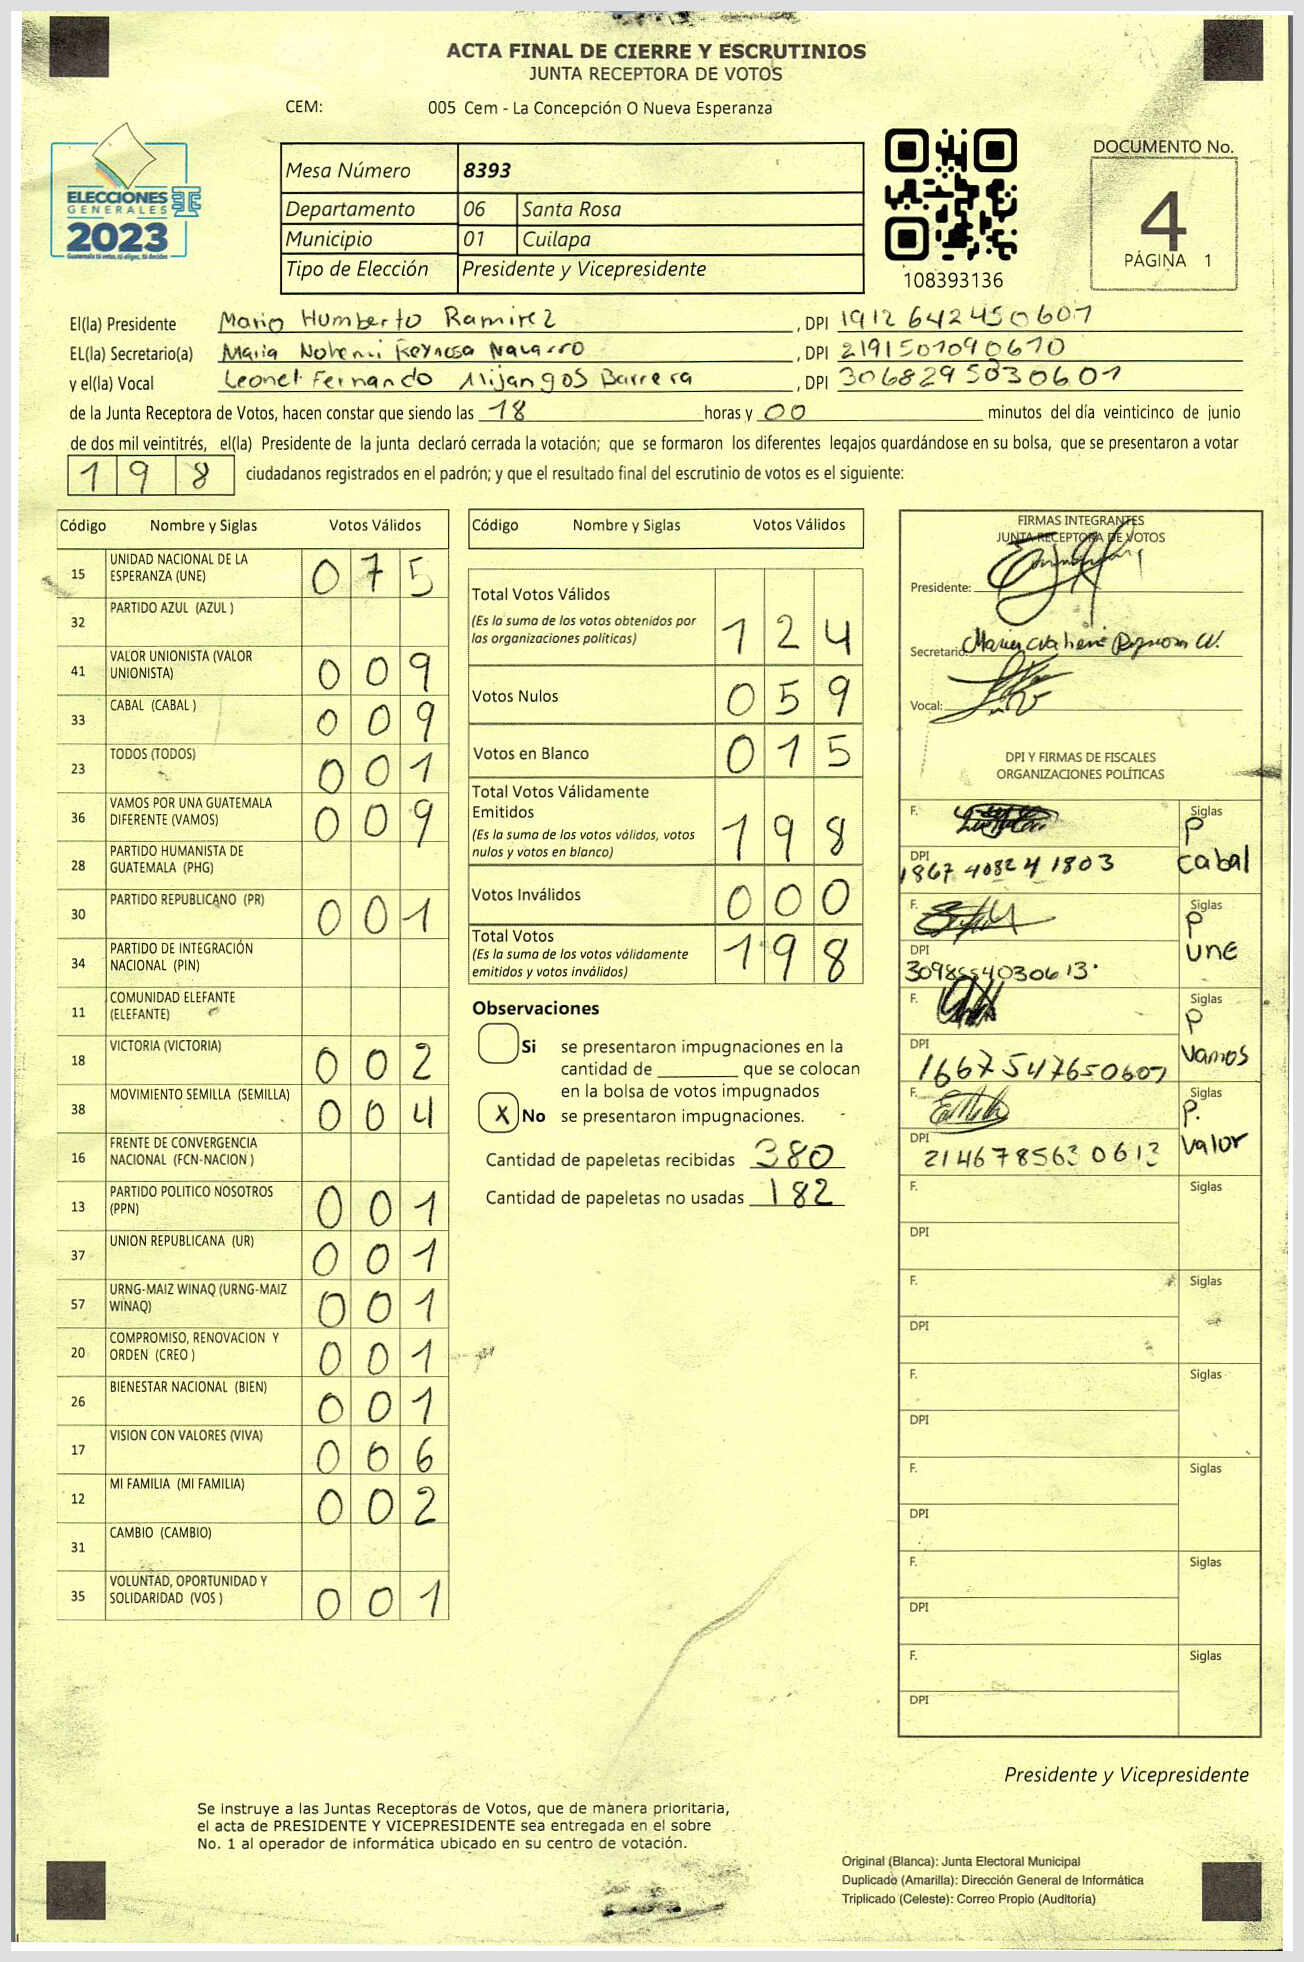 ACTA FINAL DE CIERRE Y ESCRUTINIOS
JUNTA RECEPTORA DE VOTOS
CEM: 005 Cem - La Concepción O Nueva Esperanza
ELECCIONES
GENERALES
2023
Guatemala tú votas, tú eliges, tú decides
Mesa Número 8393
Departamento 06 Santa Rosa
Municipio 01 Cuilapa
Tipo de Elección Presidente y Vicepresidente
108393136
DOCUMENTO No.
4
PÁGINA 1
El(la) Presidente Mario Humberto Ramirez , DPI 1912642450601
EL(la) Secretario(a) Maria Nohemi Reynosa Navarro , DPI 2191501090610
y el(la) Vocal Leonel Fernando Mijangos Barrera , DPI 3068295030601
de la Junta Receptora de Votos, hacen constar que siendo las 18 horas y 00 minutos del día veinticinco de junio
de dos mil veintitrés, el(la) Presidente de la junta declaró cerrada la votación; que se formaron los diferentes legajos quardándose en su bolsa, que se presentaron a votar
198 ciudadanos registrados en el padrón; y que el resultado final del escrutinio de votos es el siguiente:
Código Nombre y Siglas Votos Válidos
15 UNIDAD NACIONAL DE LA ESPERANZA (UNE) 075
32 PARTIDO AZUL (AZUL )
41 VALOR UNIONISTA (VALOR UNIONISTA) 009
33 CABAL (CABAL ) 009
23 TODOS (TODOS) 001
36 VAMOS POR UNA GUATEMALA DIFERENTE (VAMOS) 009
28 PARTIDO HUMANISTA DE GUATEMALA (PHG)
30 PARTIDO REPUBLICANO (PR) 001
34 PARTIDO DE INTEGRACIÓN NACIONAL (PIN)
11 COMUNIDAD ELEFANTE (ELEFANTE)
18 VICTORIA (VICTORIA) 002
38 MOVIMIENTO SEMILLA (SEMILLA) 004
16 FRENTE DE CONVERGENCIA NACIONAL (FCN-NACION )
13 PARTIDO POLITICO NOSOTROS (PPN) 001
37 UNION REPUBLICANA (UR) 001
57 URNG-MAIZ WINAQ (URNG-MAIZ WINAQ) 001
20 COMPROMISO, RENOVACION Y ORDEN (CREO ) 001
26 BIENESTAR NACIONAL (BIEN) 001
17 VISION CON VALORES (VIVA) 006
12 MI FAMILIA (MI FAMILIA) 002
31 CAMBIO (CAMBIO)
35 VOLUNTAD, OPORTUNIDAD Y SOLIDARIDAD (VOS ) 001
Código Nombre y Siglas Votos Válidos
Total Votos Válidos
(Es la suma de los votos obtenidos por
las organizaciones políticas) 124
Votos Nulos 059
Votos en Blanco 015
Total Votos Válidamente
Emitidos
(Es la suma de los votos válidos, votos
nulos y votos en blanco) 198
Votos Inválidos 000
Total Votos
(Es la suma de los votos válidamente
emitidos y votos inválidos) 198
Observaciones
Si se presentaron impugnaciones en la
cantidad de ________ que se colocan
en la bolsa de votos impugnados
X No se presentaron impugnaciones.
Cantidad de papeletas recibidas 380
Cantidad de papeletas no usadas 182
FIRMAS INTEGRANTES
JUNTA RECEPTORA DE VOTOS
Presidente:
Secretario:
Vocal:
DPI Y FIRMAS DE FISCALES
ORGANIZACIONES POLÍTICAS
F. Siglas
P cabal
DPI 1867 40824 1803
F. Siglas
P une
DPI 3098554030613
F. Siglas
P vamos
DPI 1667547650607
F. Siglas
P. valor
DPI 2146785630613
F. Siglas
DPI
F. Siglas
DPI
F. Siglas
DPI
F. Siglas
DPI
F. Siglas
DPI
F. Siglas
DPI
Presidente y Vicepresidente
Se instruye a las Juntas Receptoras de Votos, que de manera prioritaria,
el acta de PRESIDENTE Y VICEPRESIDENTE sea entregada en el sobre
No. 1 al operador de informática ubicado en su centro de votación.
Original (Blanca): Junta Electoral Municipal
Duplicado (Amarilla): Dirección General de Informática
Triplicado (Celeste): Correo Propio (Auditoría)